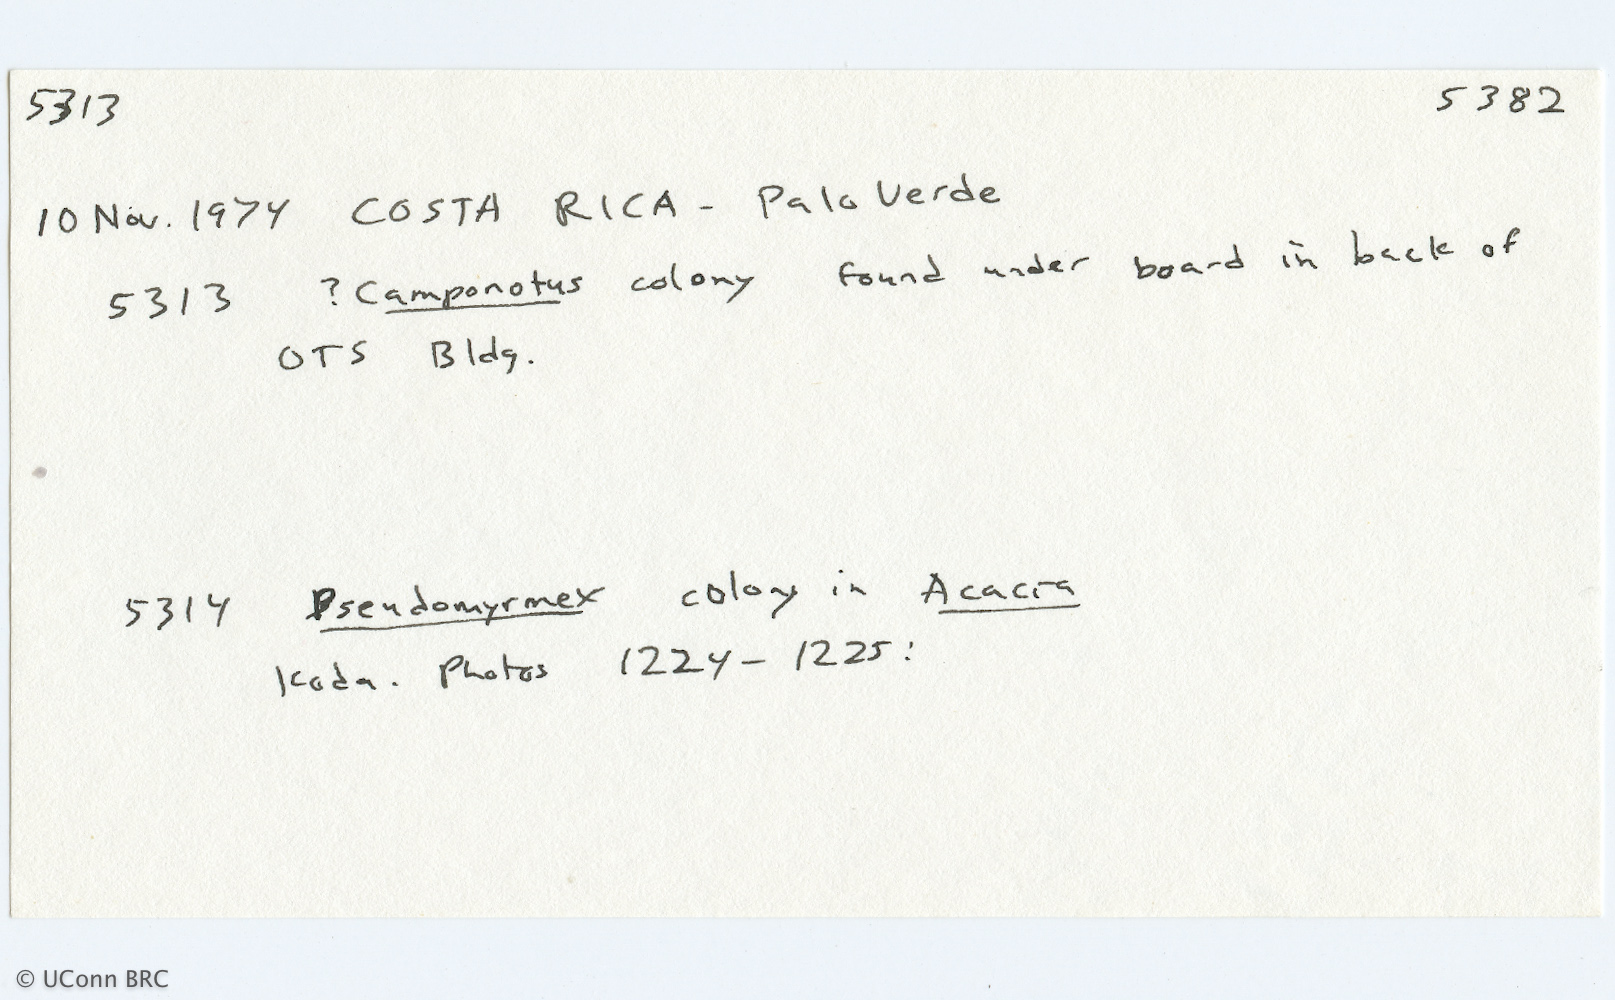 5313 5382
10 Nov. 1974 COSTA RICA - Palo Verde
5313 ? Camponotus colony found under board in back of
OTS Bldg.
5314 Pseudomyrmex colony in Acacia
Koda. Photos 1224 - 1225:
© UConn BRC